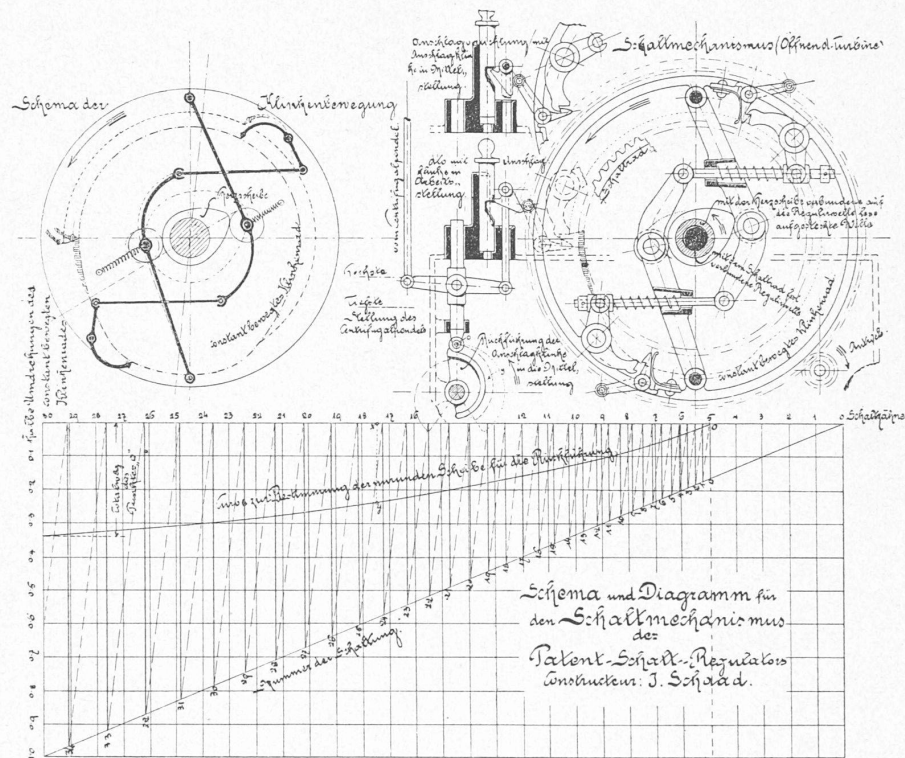 Schema der
Klinkenbewegung
Herzscheibe
constant bewegtes Klinkenrad
Anschlagvorrichtung mit
Anschlagklin
ke in Mittel,,
stellung
dto mit
Klinke in
Arbeits,,
stellung
Anschlag
vom Centrifugalpendel
Höchste
Tiefste
Stellung des
Centrifugalpendels
Rückführung der
Anschlagklinke
in die Mittel,
stellung
Schaltmechanismus (Öffnend-Turbine)
Schaltrad
mit der Herzscheibe verbundene auf
die Regulirwelle lose
aufgesteckte Hülse
mit dem Schaltrad fest
verbundene Regulirwelle
constant bewegtes Klinkenrad
Antrieb
Halbe Umdrehungen des
constant bewegten
Klinkenrades
30 29 28 27 26 25 24 23 22 21 20 19 18 17 16 15 14 13 12 11 10 9 8 7 6 5 4 3 2 1 0 Schaltzähne
0.1
0.2
0.3
0.4
0.5
0.6
0.7
0.8
0.9
1.0
des
Punktes „O"
Curve zur Bestimmung der unrunden Scheibe für die Rückführung.
Nummer der Schaltung.
Schema und Diagramm für
den Schaltmechanismus
des
Patent-Schalt-Regulators
Constructeur: J. Schaad.